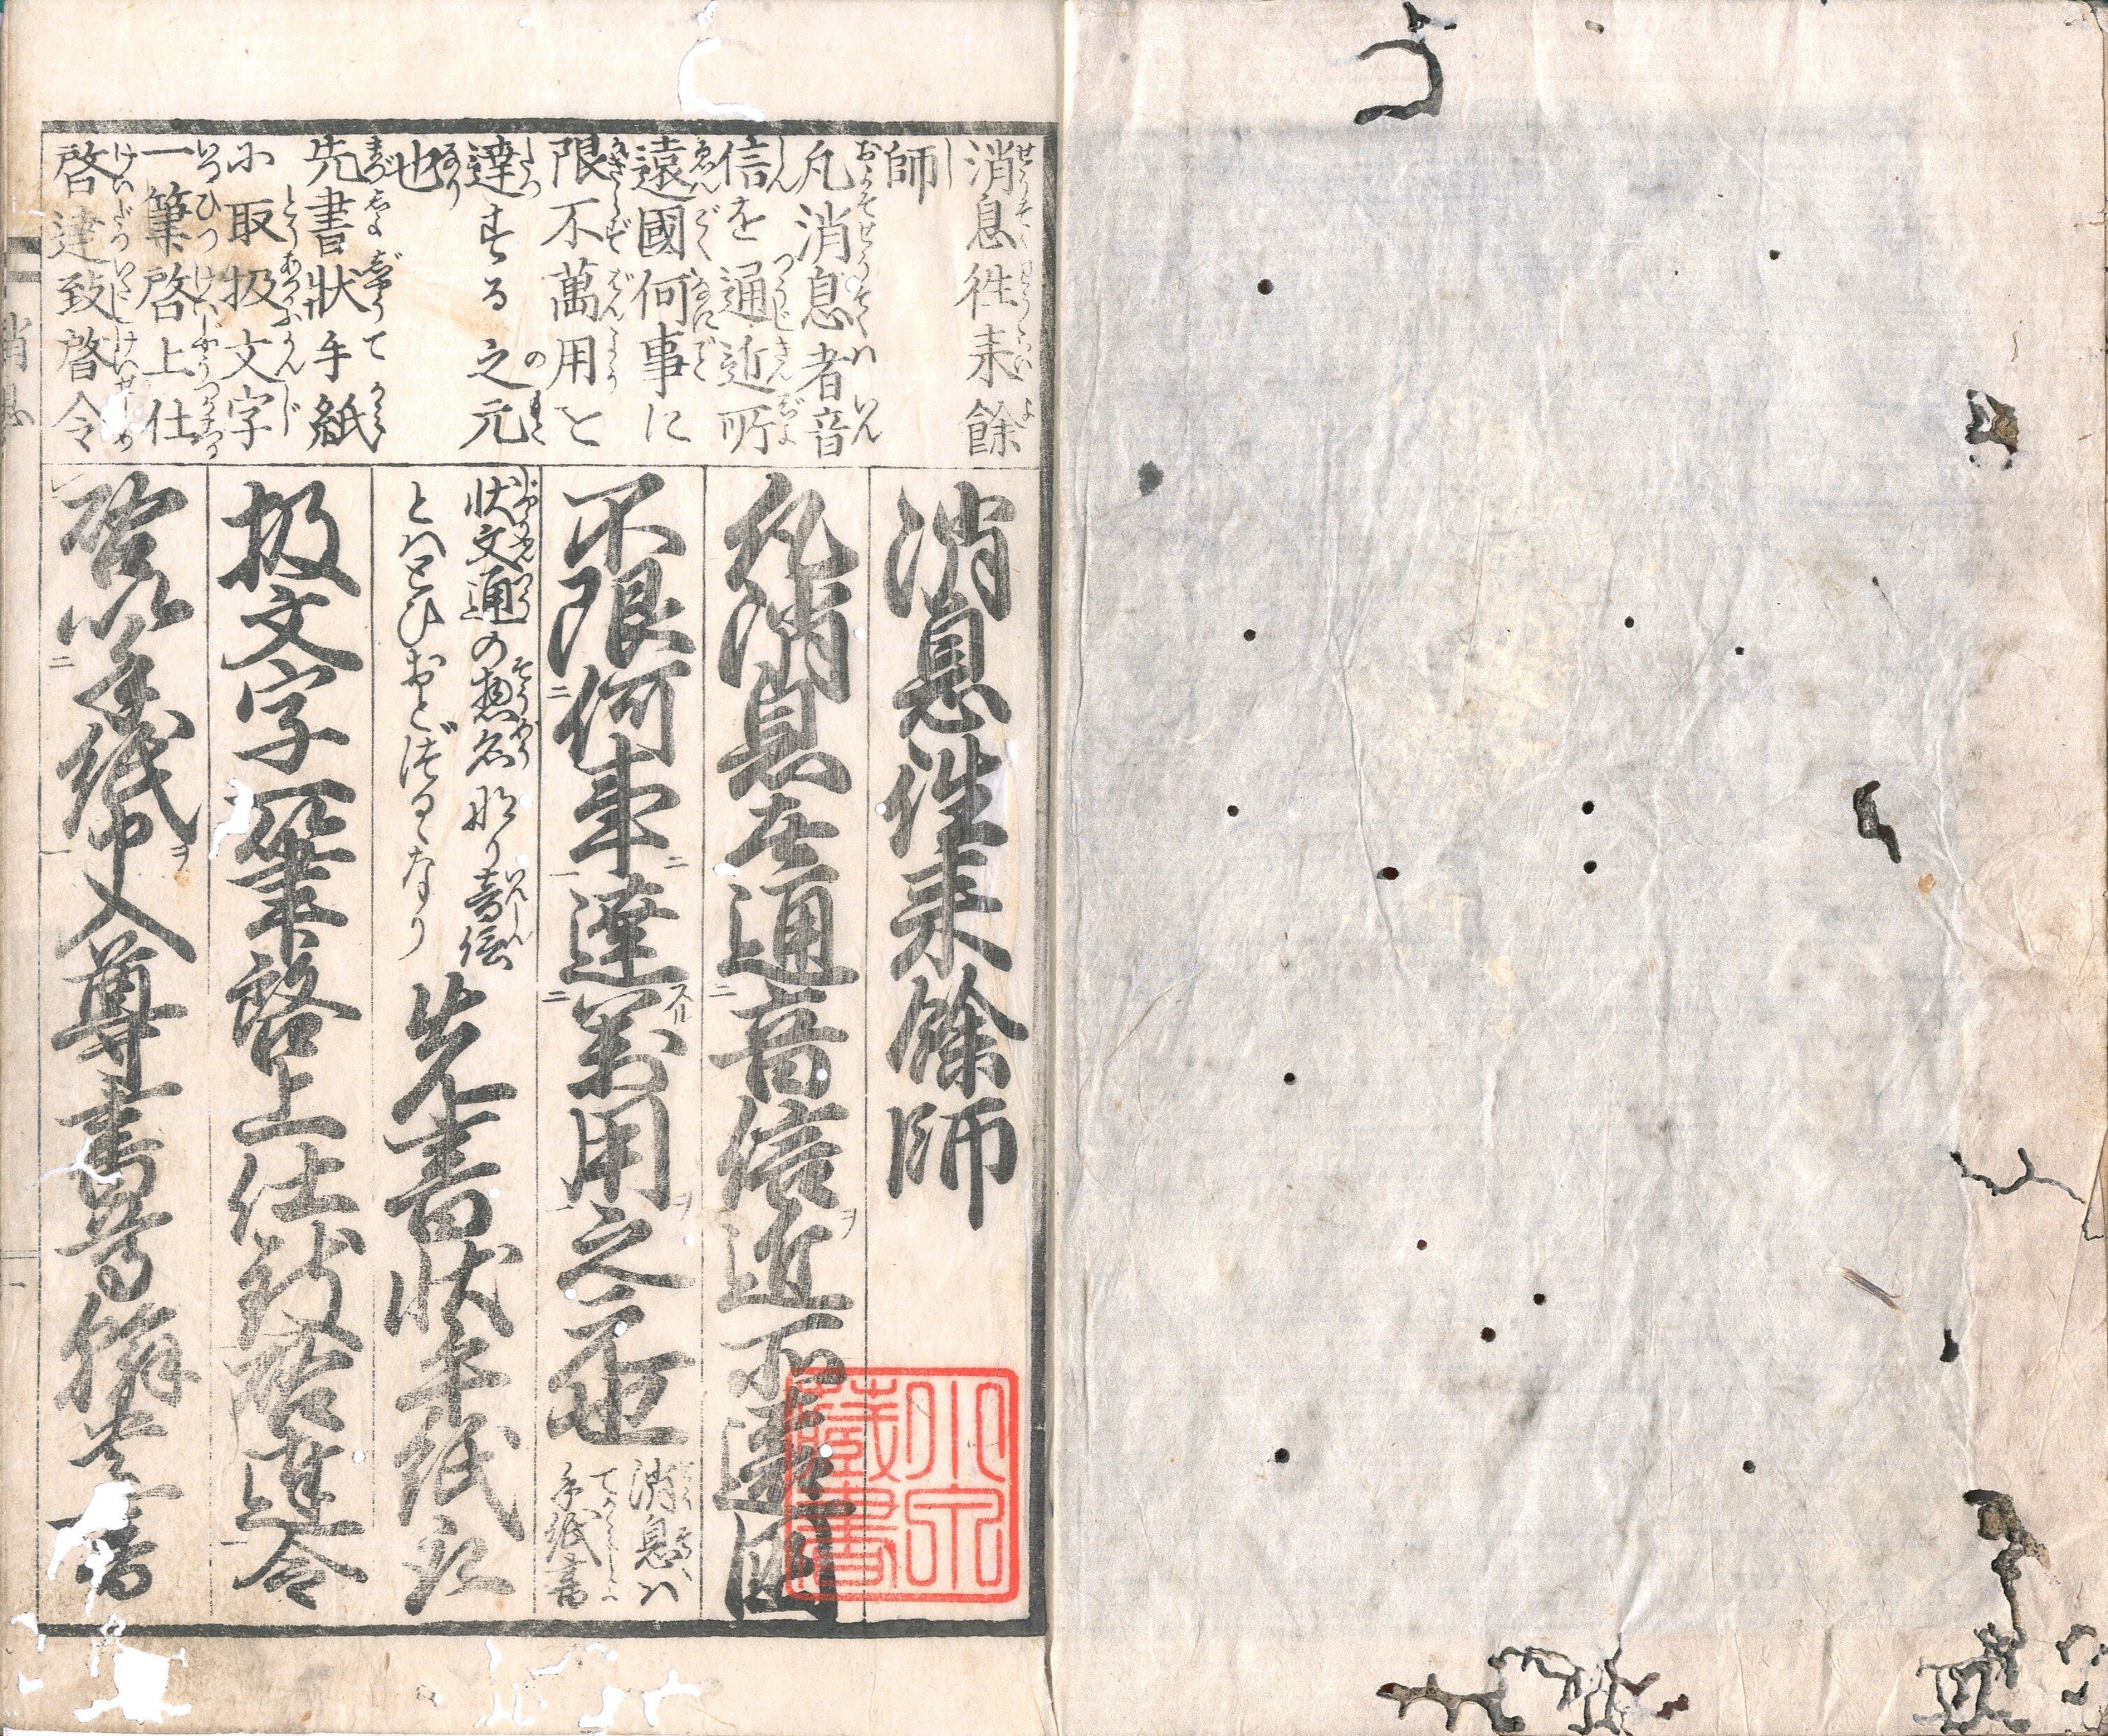 消息徃来餘
師
凡消息者音
信を通近所
遠國何事に
限不萬用と
達する之元
也
先書状手紙
に取扱文字
一筆啓上仕
啓達致啓令
消息徃来餘師
凡消息者通音信近所遠国
不限何事達萬用之元也
消息ハ
手紙書
状文通の惣名なり音信
とハとひおとづるゝなり
先書状手紙取
扱文字一筆啓上仕致啓達令
啓以手紙申入尊書尊翰
消息
一
小宍
蔵書